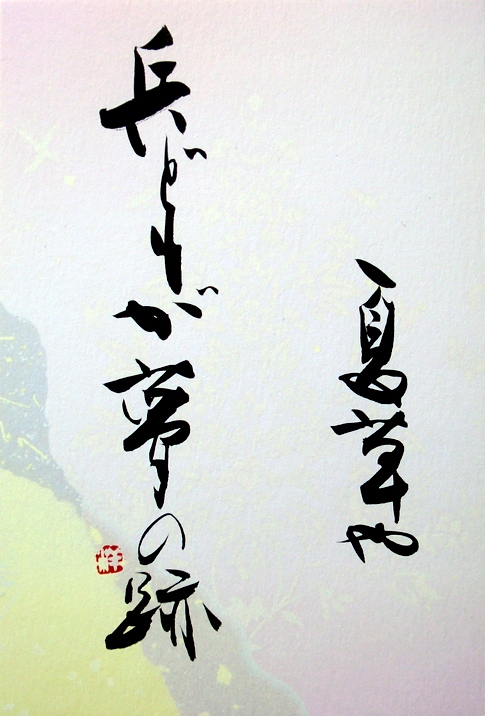 夏草や
兵どもが夢の跡